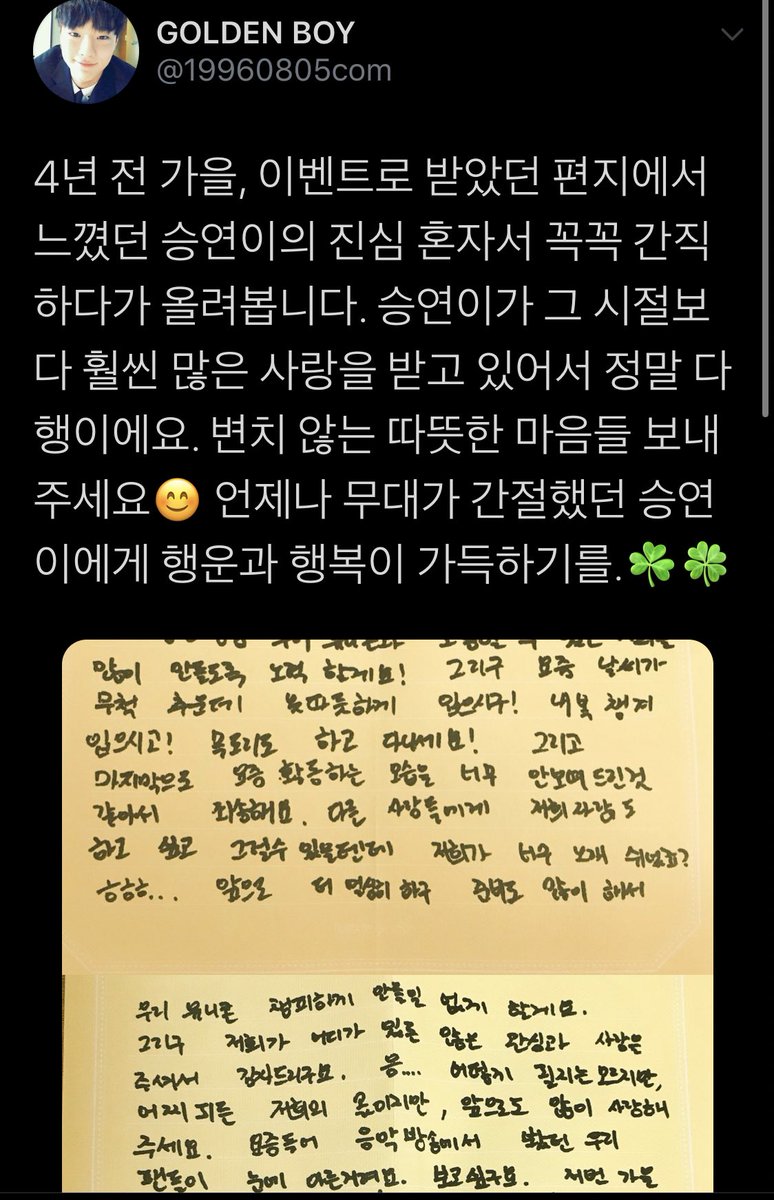 GOLDEN BOY
@19960805com
4년 전 가을, 이벤트로 받았던 편지에서
느꼈던 승연이의 진심 혼자서 꼭꼭 간직
하다가 올려봅니다. 승연이가 그 시절보
다 훨씬 많은 사랑을 받고 있어서 정말 다
행이에요. 변치 않는 따뜻한 마음들 보내
주세요😊 언제나 무대가 간절했던 승연
이에게 행운과 행복이 가득하기를.☘️🍀
많이 만들도록 노력 할게요! 그리구 요즘 날씨가
무척 추운데 따뜻하게 입으시구! 내복 챙겨
입으시고! 목도리도 하고 다니세요! 그리고
마지막으로 요즘 활동하는 모습을 너무 안보여 드린것
같아서 죄송해요. 다른 사람들에게 저희 자랑도
하고 싶고 그럴수 있을텐데 저희가 너무 오래 쉬었죠?
흐흐흐... 앞으로 더 열심히 하구 준비도 많이 해서
우리 유니콘 창피하게 만들일 없게 할게요.
그리구 저희가 어디가 있든 많은 관심과 사랑은
주셔서 감사드리구요. 음.... 어떻게 될지는 모르지만,
어찌 되든 저희의 몫이지만, 앞으로도 많이 사랑해
주세요. 요즘들어 음악방송에서 봤던 우리
팬들이 눈에 아른거려요. 보고싶구요. 저번 가을